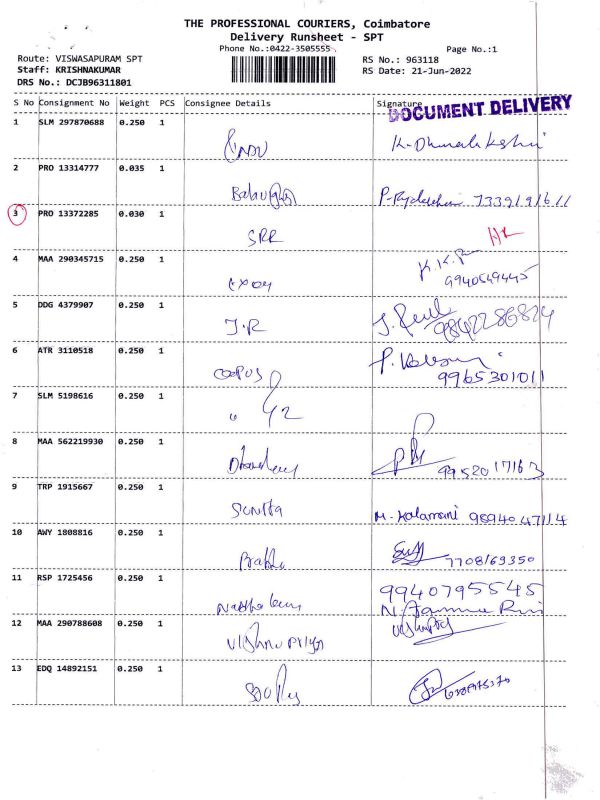 THE PROFESSIONAL COURIERS, Coimbatore
Delivery Runsheet - SPT
Phone No.:0422-3505555
Page No.:1
Route: VISWASAPURAM SPT
RS No.: 963118
Staff: KRISHNAKUMAR
RS Date: 21-Jun-2022
DRS No.: DCJB96311801
S No Consignment No Weight PCS Consignee Details Signature
DOCUMENT DELIVERY
1 SLM 297870688 0.250 1
2 PRO 13314777 0.035 1
Babu
3 PRO 13372285 0.030 1
SRR
4 MAA 290345715 0.250 1
9940549445
5 DDG 4379907 0.250 1
J.R 9842286824
6 ATR 3110518 0.250 1
9965301011
7 SLM 5198616 0.250 1
8 MAA 562219930 0.250 1
9952017163
9 TRP 1915667 0.250 1
Sunitha M. Kalamani 9894047114
10 AWY 1808816 0.250 1
Prabhu 7708169350
11 RSP 1725456 0.250 1
9940795545
12 MAA 290788608 0.250 1
Vishnu Priya
13 EDQ 14892151 0.250 1